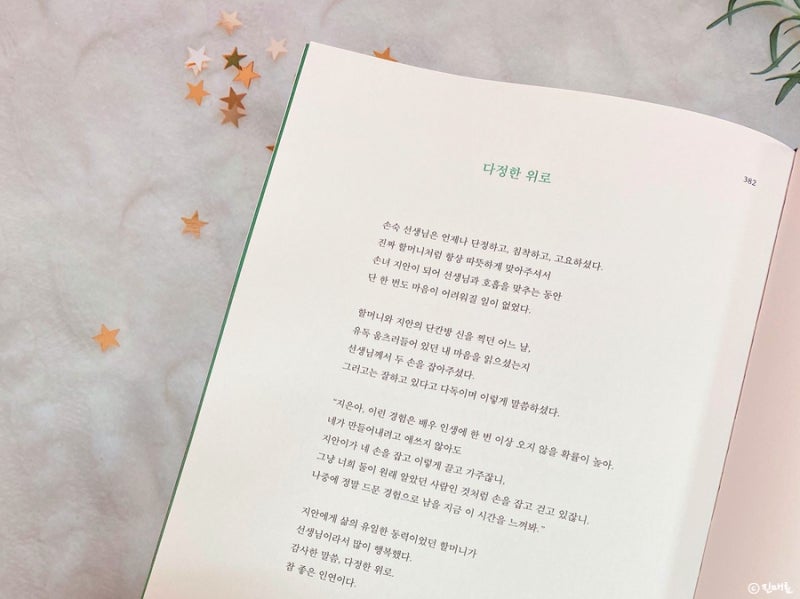 다정한 위로
382
손숙 선생님은 언제나 단정하고, 침착하고, 고요하셨다.
진짜 할머니처럼 항상 따뜻하게 맞아주셔서
손녀 지안이 되어 선생님과 호흡을 맞추는 동안
단 한 번도 마음이 어려워질 일이 없었다.
할머니와 지안의 단칸방 신을 찍던 어느 날,
유독 움츠러들어 있던 내 마음을 읽으셨는지
선생님께서 두 손을 잡아주셨다.
그리고는 잘하고 있다고 다독이며 이렇게 말씀하셨다.
“지은아, 이런 경험은 배우 인생에 한 번 이상 오지 않을 확률이 높아.
네가 만들어내려고 애쓰지 않아도
지안이가 네 손을 잡고 이렇게 끌고 가주잖니,
그냥 너희 둘이 원래 알았던 사람인 것처럼 손을 잡고 걷고 있잖니.
나중에 정말 드문 경험으로 남을 지금 이 시간을 느껴봐.”
지안에게 삶의 유일한 동력이었던 할머니가
선생님이라서 많이 행복했다.
감사한 말씀, 다정한 위로.
참 좋은 인연이다.